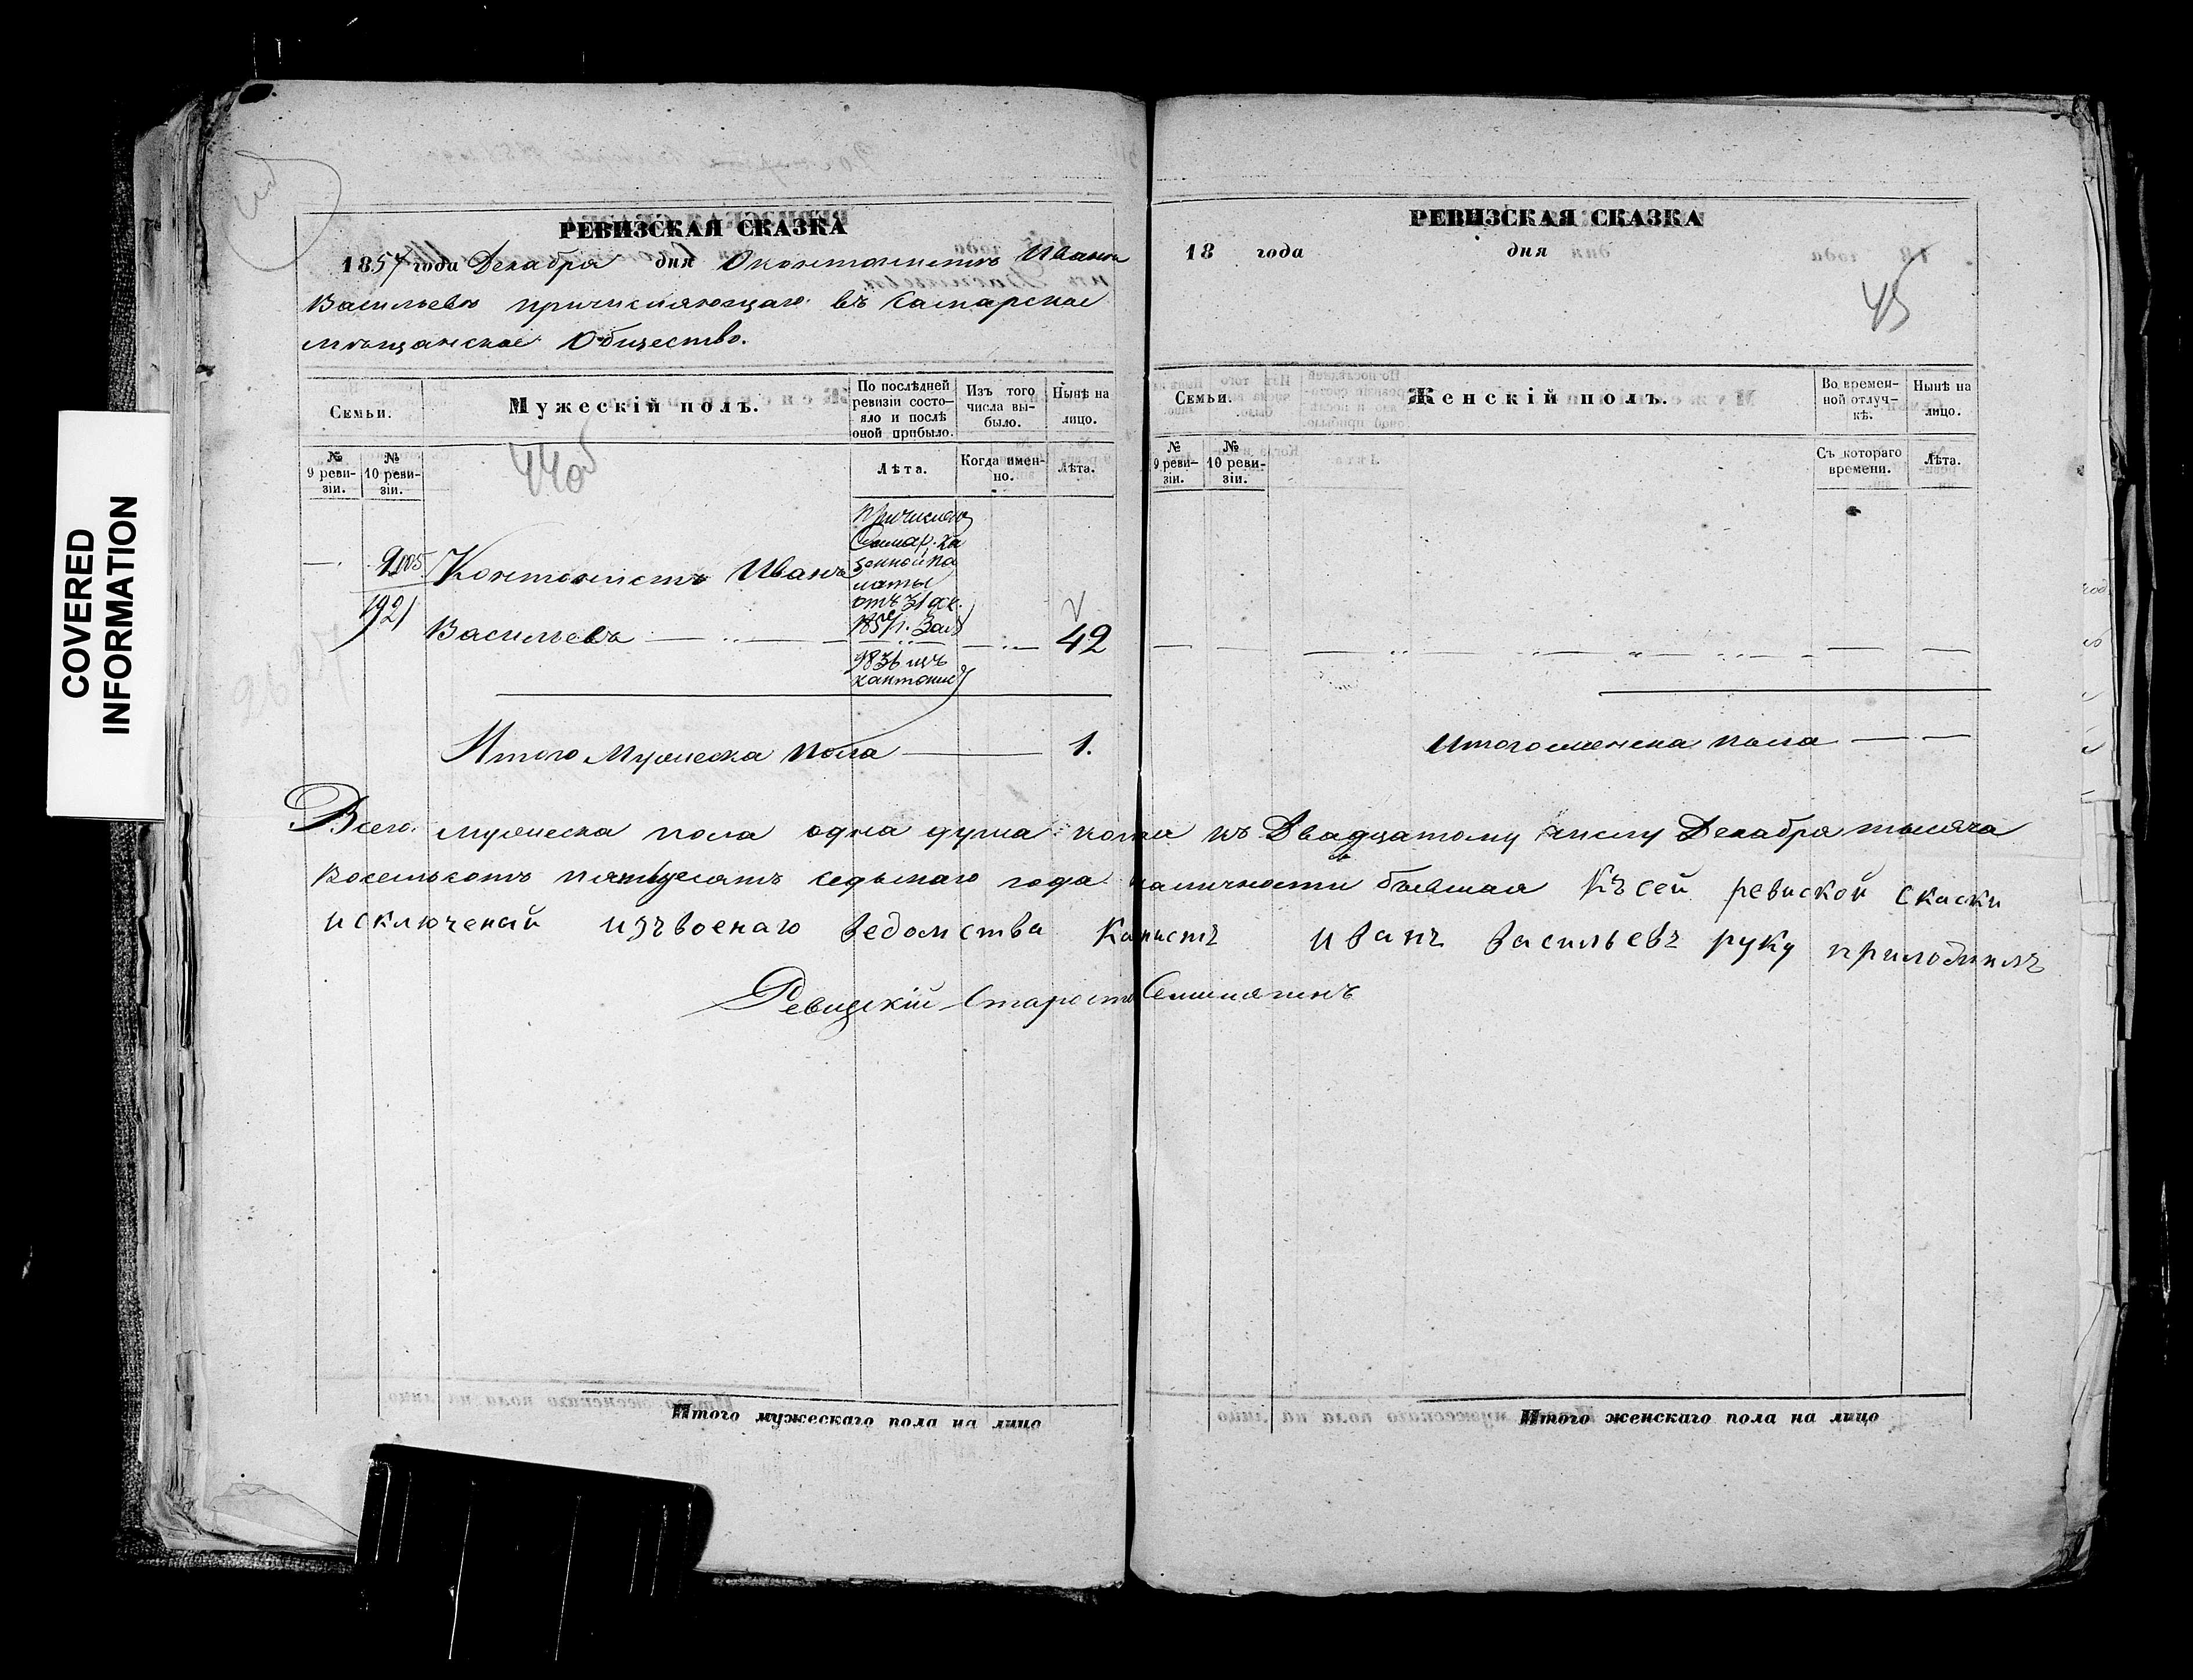 COVERED
INFORMATION
РЕВИЗСКАЯ СКАЗКА
1857 года Декабря дня О контонистъ Иванъ
Васильевъ причисляющаго въ Самарское
мѣщанское Общество.
Семьи.
Мужескій полъ.
По послѣдней ревизіи состояло и послѣ оной прибыло.
Изъ того числа выбыло.
Нынѣ на лицо.
№ 9 ревизіи.
№ 10 ревизіи.
44об
Лѣта.
Когда именно.
Лѣта.
1921
Контонистъ Иванъ
Васильевъ
Самар. ка
зенной па
латы
отъ 31 ок.
1857 г. За №
9831 изъ
кантонис
42
Итого Мужеска пола 1.
РЕВИЗСКАЯ СКАЗКА
18 года дня
45
Семьи.
Женскій полъ.
Во временной отлучкѣ.
Нынѣ на лицо.
№ 9 ревизіи.
№ 10 ревизіи.
Съ котораго времени.
Лѣта.
Итого женска пола
Всего мужеска пола одна душа къ Двадцатому числу Декабря тысяча
восемьсотъ пятьдесятъ седьмаго года наличности бывшая Къ сей ревиской скаски
исключеный изъ военаго ведомства Иванъ Васильевъ руку приложилъ
Ревизскій Староста
Итого мужескаго пола на лицо
Итого женскаго пола на лицо